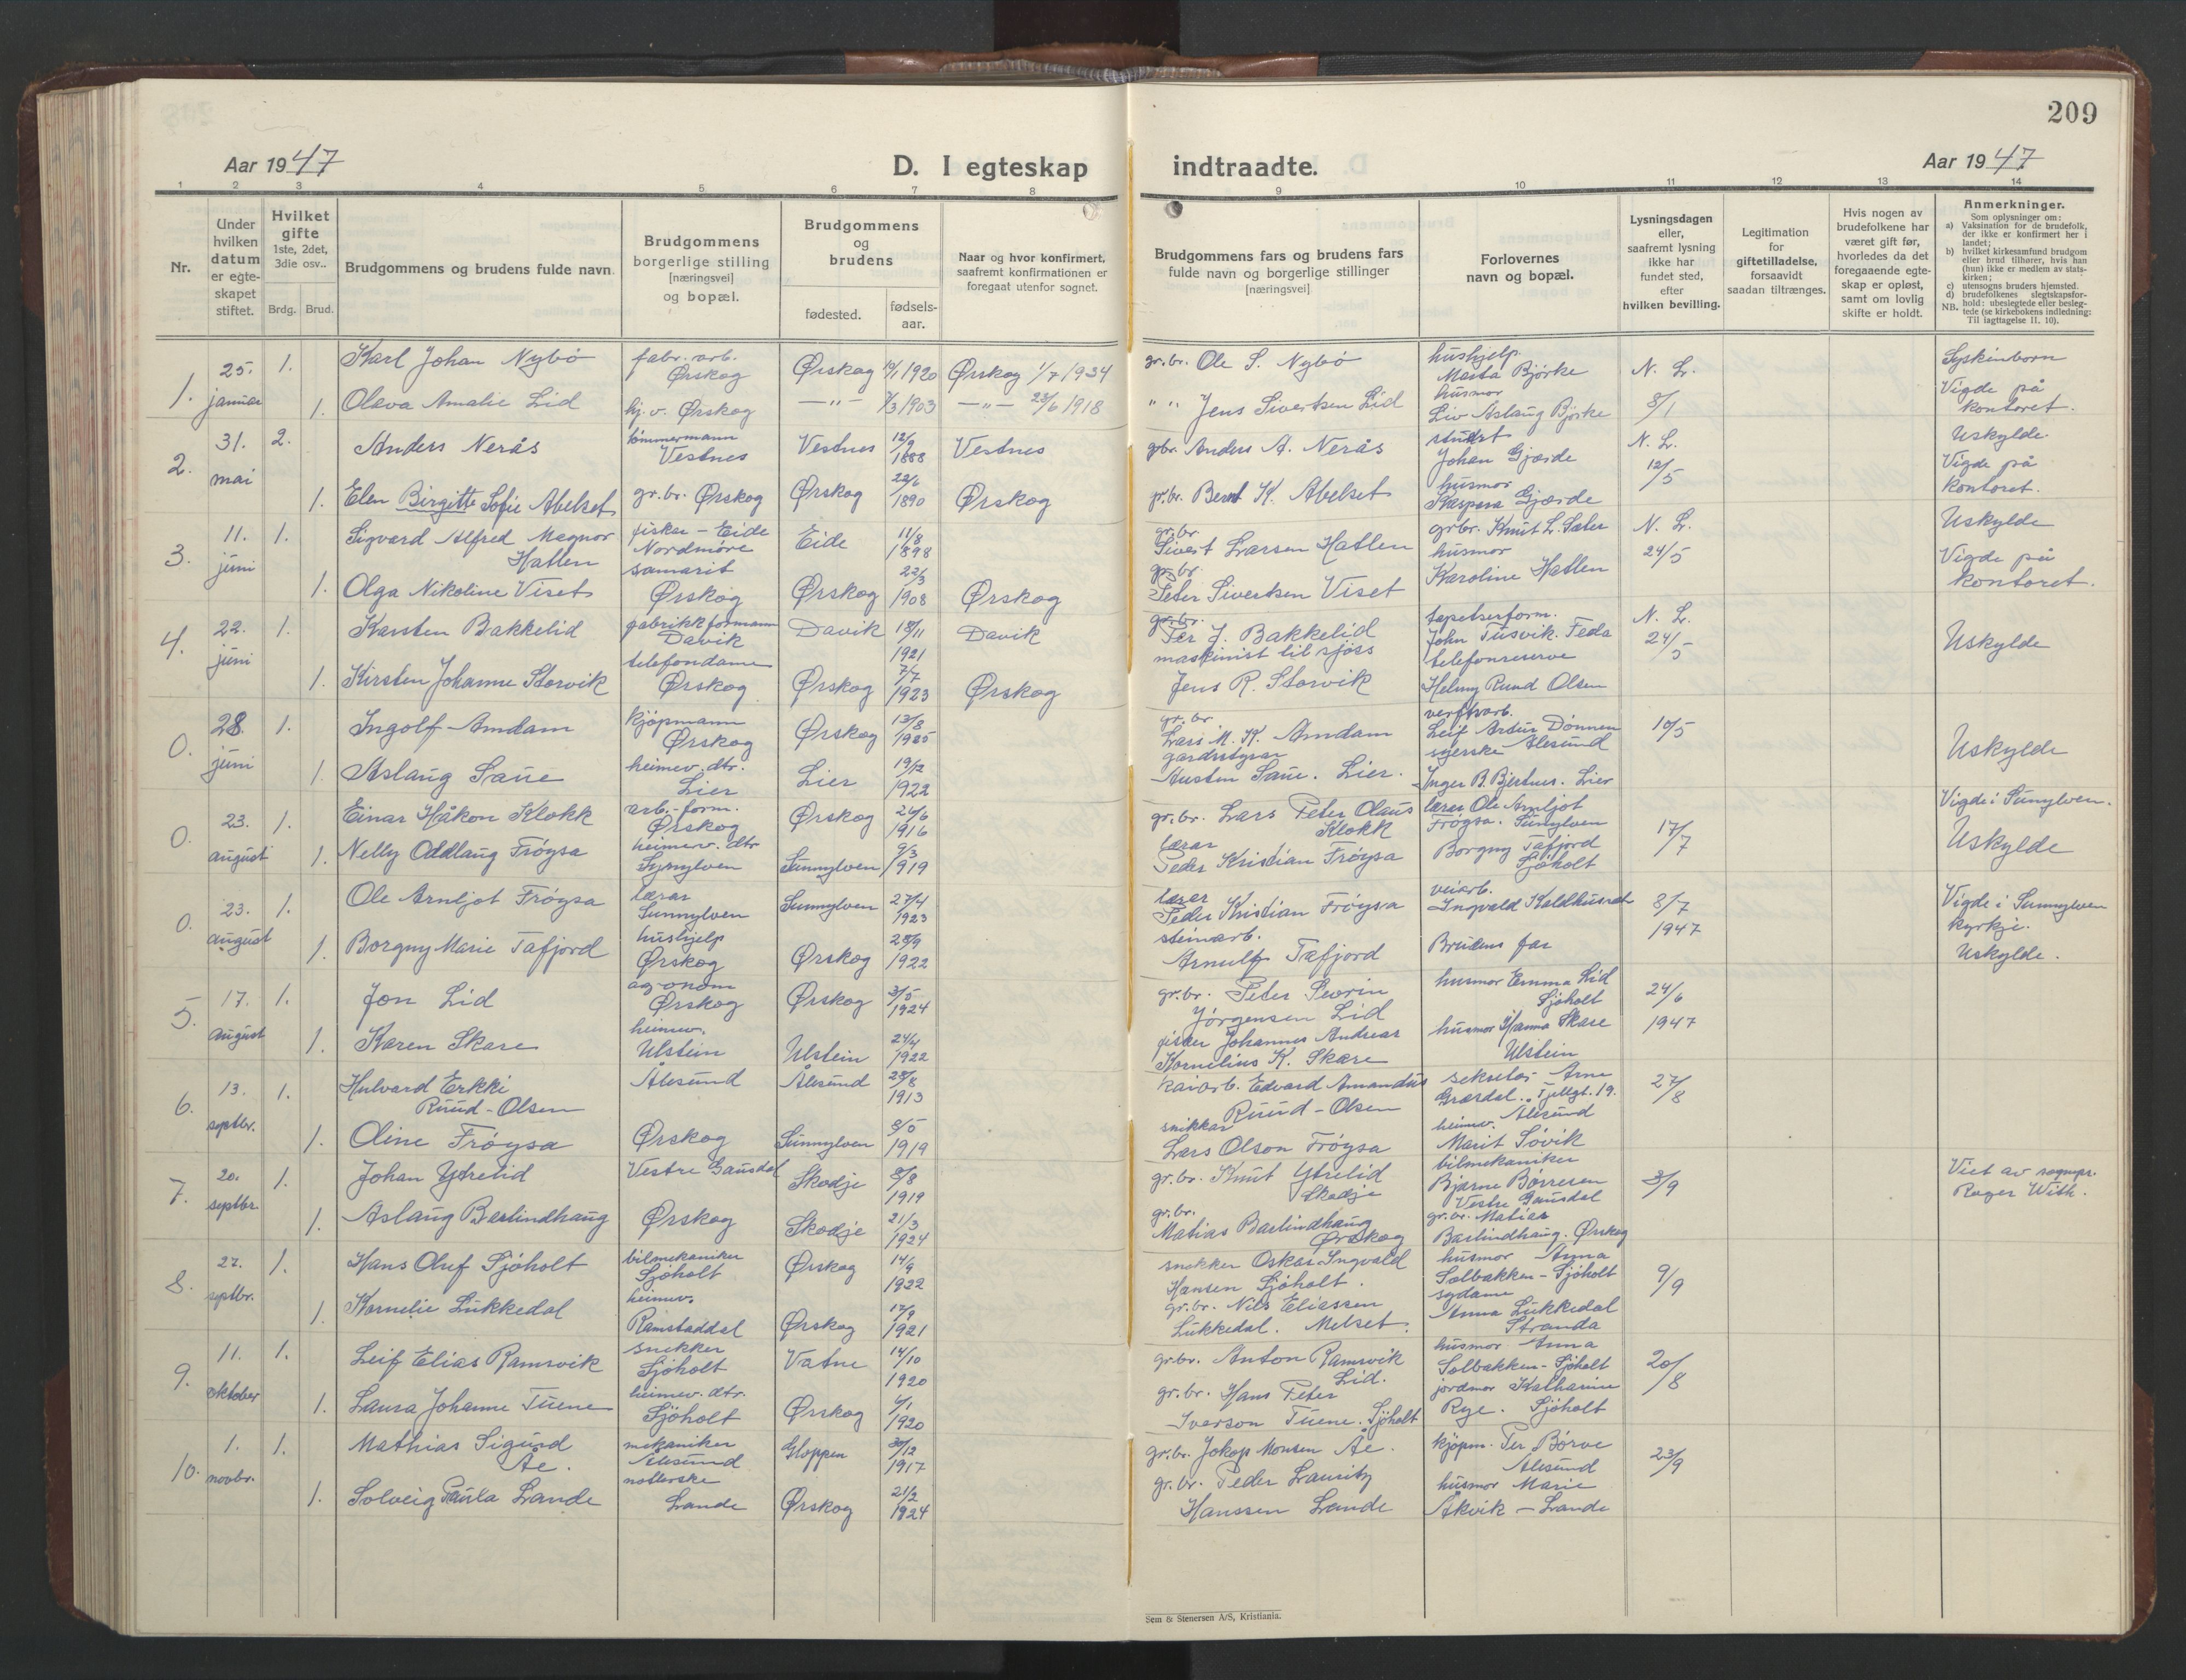 209
Aar 1947
D. I egteskap indtraadte.
Aar 1947
1 2 3 4 5 6 7 8 9 10 11 12 13 14
Nr.
Under hvilken datum er egteskapet stiftet.
Hvilket gifte 1ste, 2det, 3die osv..
Brdg. Brud.
Brudgommens og brudens fulde navn.
Brudgommens borgerlige stilling [næringsvei] og bopæl.
Brudgommens og brudens
fødested.
fødselsaar.
Naar og hvor konfirmert, saafremt konfirmationen er foregaat utenfor sognet.
Brudgommens fars og brudens fars fulde navn og borgerlige stillinger [næringsvei]
Forlovernes navn og bopæl.
Lysningsdagen eller, saafremt lysning ikke har fundet sted, efter hvilken bevilling.
Legitimation for giftetilladelse, forsaavidt saadan tiltrænges.
Hvis nogen av brudefolkene har været gift før, hvorledes da det foregaaende egteskap er opløst, samt om lovlig skifte er holdt.
Anmerkninger.
Som oplysninger om:
a) Vaksination for de brudefolk, der ikke er konfirmert her i landet;
b) hvilket kirkesamfund brudgom eller brud tilhører, hvis han (hun) ikke er medlem av statskirken;
c) utensogns bruders hjemsted.
d) brudefolkenes slegtskapsforhold: ubeslegtede eller beslegtede (se kirkebokens indledning: Til iagttagelse II. 10).
NB.
1. 25. januar 1. Karl Johan Nybø fabr. arb. Ørskog Ørskog 19/1 1920 Ørskog 1/7 1934 gr.br. Ole S. Nybø hushjelp Marta Bjørke N. L. Syskinborn
1. Olava Amalie Lid hj.v. Ørskog —"— 7/3 1903 —"— 23/6 1918 " " Jens Sivertsen Lid husmor Liv Aslaug Bjørke 8/1 Vigde på kontoret.
2. 31. mai 2. Anders Nerås tømmermann Vestnes Vestnes 12/9 1888 Vestnes gbr. Anders A. Nerås Johan Gjærde N. L. 12/5 Uskylde.
1. Elen Birgitte Sofie Abelset gr.br. Ørskog Ørskog 22/6 1890 Ørskog gr.br. Bernt K. Abelset husmor Kaspara Gjærde Vigde på kontoret.
3. 11. juni 1. Sigvard Alfred Magnor Hatlen fisker – Eide Nordmøre Eide 11/8 1898 gr.br. Sivert Larsen Hatlen grbr. Knut L. Sæter N. L. 24/5 Uskylde
1. Olga Nikoline Viset samarit Ørskog Ørskog 22/3 1908 Ørskog gr.br. Peter Sivertsen Viset husmor Karoline Hatlen Vigde på kontoret.
4. 22. juni 1. Karsten Bakkelid fabrikkformann Davik Davik 18/11 1921 Davik gr.br. Per J. Bakkelid tapetserform. John Tusvik. Feda N. L. 24/5 Uskylde
1. Kirsten Johanne Storvik telefondame Ørskog Ørskog 7/7 1923 Ørskog maskinist til sjøss Jens R. Storvik telefonreserve Helmy Ruud Olsen
0. 28. juni 1. Ingolf Amdam kjøpmann Ørskog Ørskog 13/8 1925 gr.br. Lars M. K. Amdam verftsarb. Leif Artur Dønnem Ålesund 10/5 Uskylde
1. Aslaug Saue heimev. dtr. Lier Lier 19/12 1922 gardsstyrar Austen Saue. Lier. syerske Inger B. Bjertnes. Lier
0. 23. august 1. Einar Håkon Klokk arb.-form. Ørskog Ørskog 26/6 1916 gr.br. Lars Peter Olaus Klokk lærar Ole Arnljot Frøysa. Sunnylven 17/7 Vigde i Sunnylven.
1. Nelly Oddlaug Frøysa heimev. dtr Sunnylven Sunnylven 9/3 1919 lærar Peder Kristian Frøysa Borgny Tafjord Sjøholt Uskylde
0. 23. august 1. Ole Arnljot Frøysa lærar Sunnylven Sunnylven 27/4 1923 lærer Peder Kristian Frøysa veiarb. Ingvald Kaldhusset 8/7 1947 Vigde i Sunnylven kyrkje.
1. Borgny Marie Tafjord hushjelp Ørskog Ørskog 28/9 1922 steinarb. Arnulf Tafjord Brudens far Uskylde.
5. 17. august 1. Jon Lid agronom Ørskog Ørskog 3/5 1924 gr.br. Peter Severin Jørgensen Lid husmor Emma Lid Sjøholt 24/6 1947
1. Karen Skare heimev. Ulstein Ulstein 24/4 1922 fisker Johannes Andreas Kornelius K. Skare husmor Hanna Skare Ulstein
6. 13. septbr. 1. Hulvard Erkki Ruud-Olsen Ålesund Ålesund 28/8 1913 kaiarb. Edvard Amandus Ruud-Olsen sekretær Arne Græsdal. Fjellgt. 19. Ålesund 27/8
1. Oline Frøysa Ørskog Sunnylven 8/5 1919 snikkar Lars Olson Frøysa heimev. Marit Søvik
7. 20. septbr 1. Johan Ytrelid Vestre Gausdal Skodje 8/8 1919 gr.br. Knut Ytrelid Skodje bilmekaniker Bjarne Børresen Vestre Gausdal 3/9 Viet av sogнepr. Roger With.
1. Aslaug Barlindhaug Ørskog Skodje 21/3 1924 gr.br. Matias Barlindhaug Ørskog gr.br. Matias Barlindhaug. Ørskog
8. 27. septbr. 1. Hans Oluf Sjøholt bilmekaniker Sjøholt Ørskog 14/9 1922 snekker Oskar Ingvald Hansen Sjøholt. husmor Anna Solbakken – Sjøholt 9/9
1. Kornelie Lukkedal heimev. Ramstaddal Ørskog 17/9 1921 gr.br. Nils Eliassen Lukkedal. Melset. sydame Anna Lukkedal Stranda
9. 11. oktober 1. Leif Elias Ramsvik snekker Sjøholt Vatne 14/10 1920 gr.br. Anton Ramsvik Lid. husmor Anna Solbakken – Sjøholt 20/8
1. Laura Johanne Tuene heimev. dtr. Sjøholt Ørskog 6/1 1920 gr.br. Hans Peter Iverson Tuene. Sjøholt jordmor Katharine Rye. Sjøholt
10. 1. novbr. 1. Mathias Sigurd Åe. mekaniker Ålesund Gloppen 30/12 1917 gr.br. Jakop Monsen Åe. kjøpm. Per Børve Ålesund 23/9
1. Solveig Paula Lande Lande Ørskog 21/2 1924 gr.br. Peder Lauritz Hanssen Lande husmor Marie Åkvik – Lande
Sem & Stenersen A/S, Kristiania.